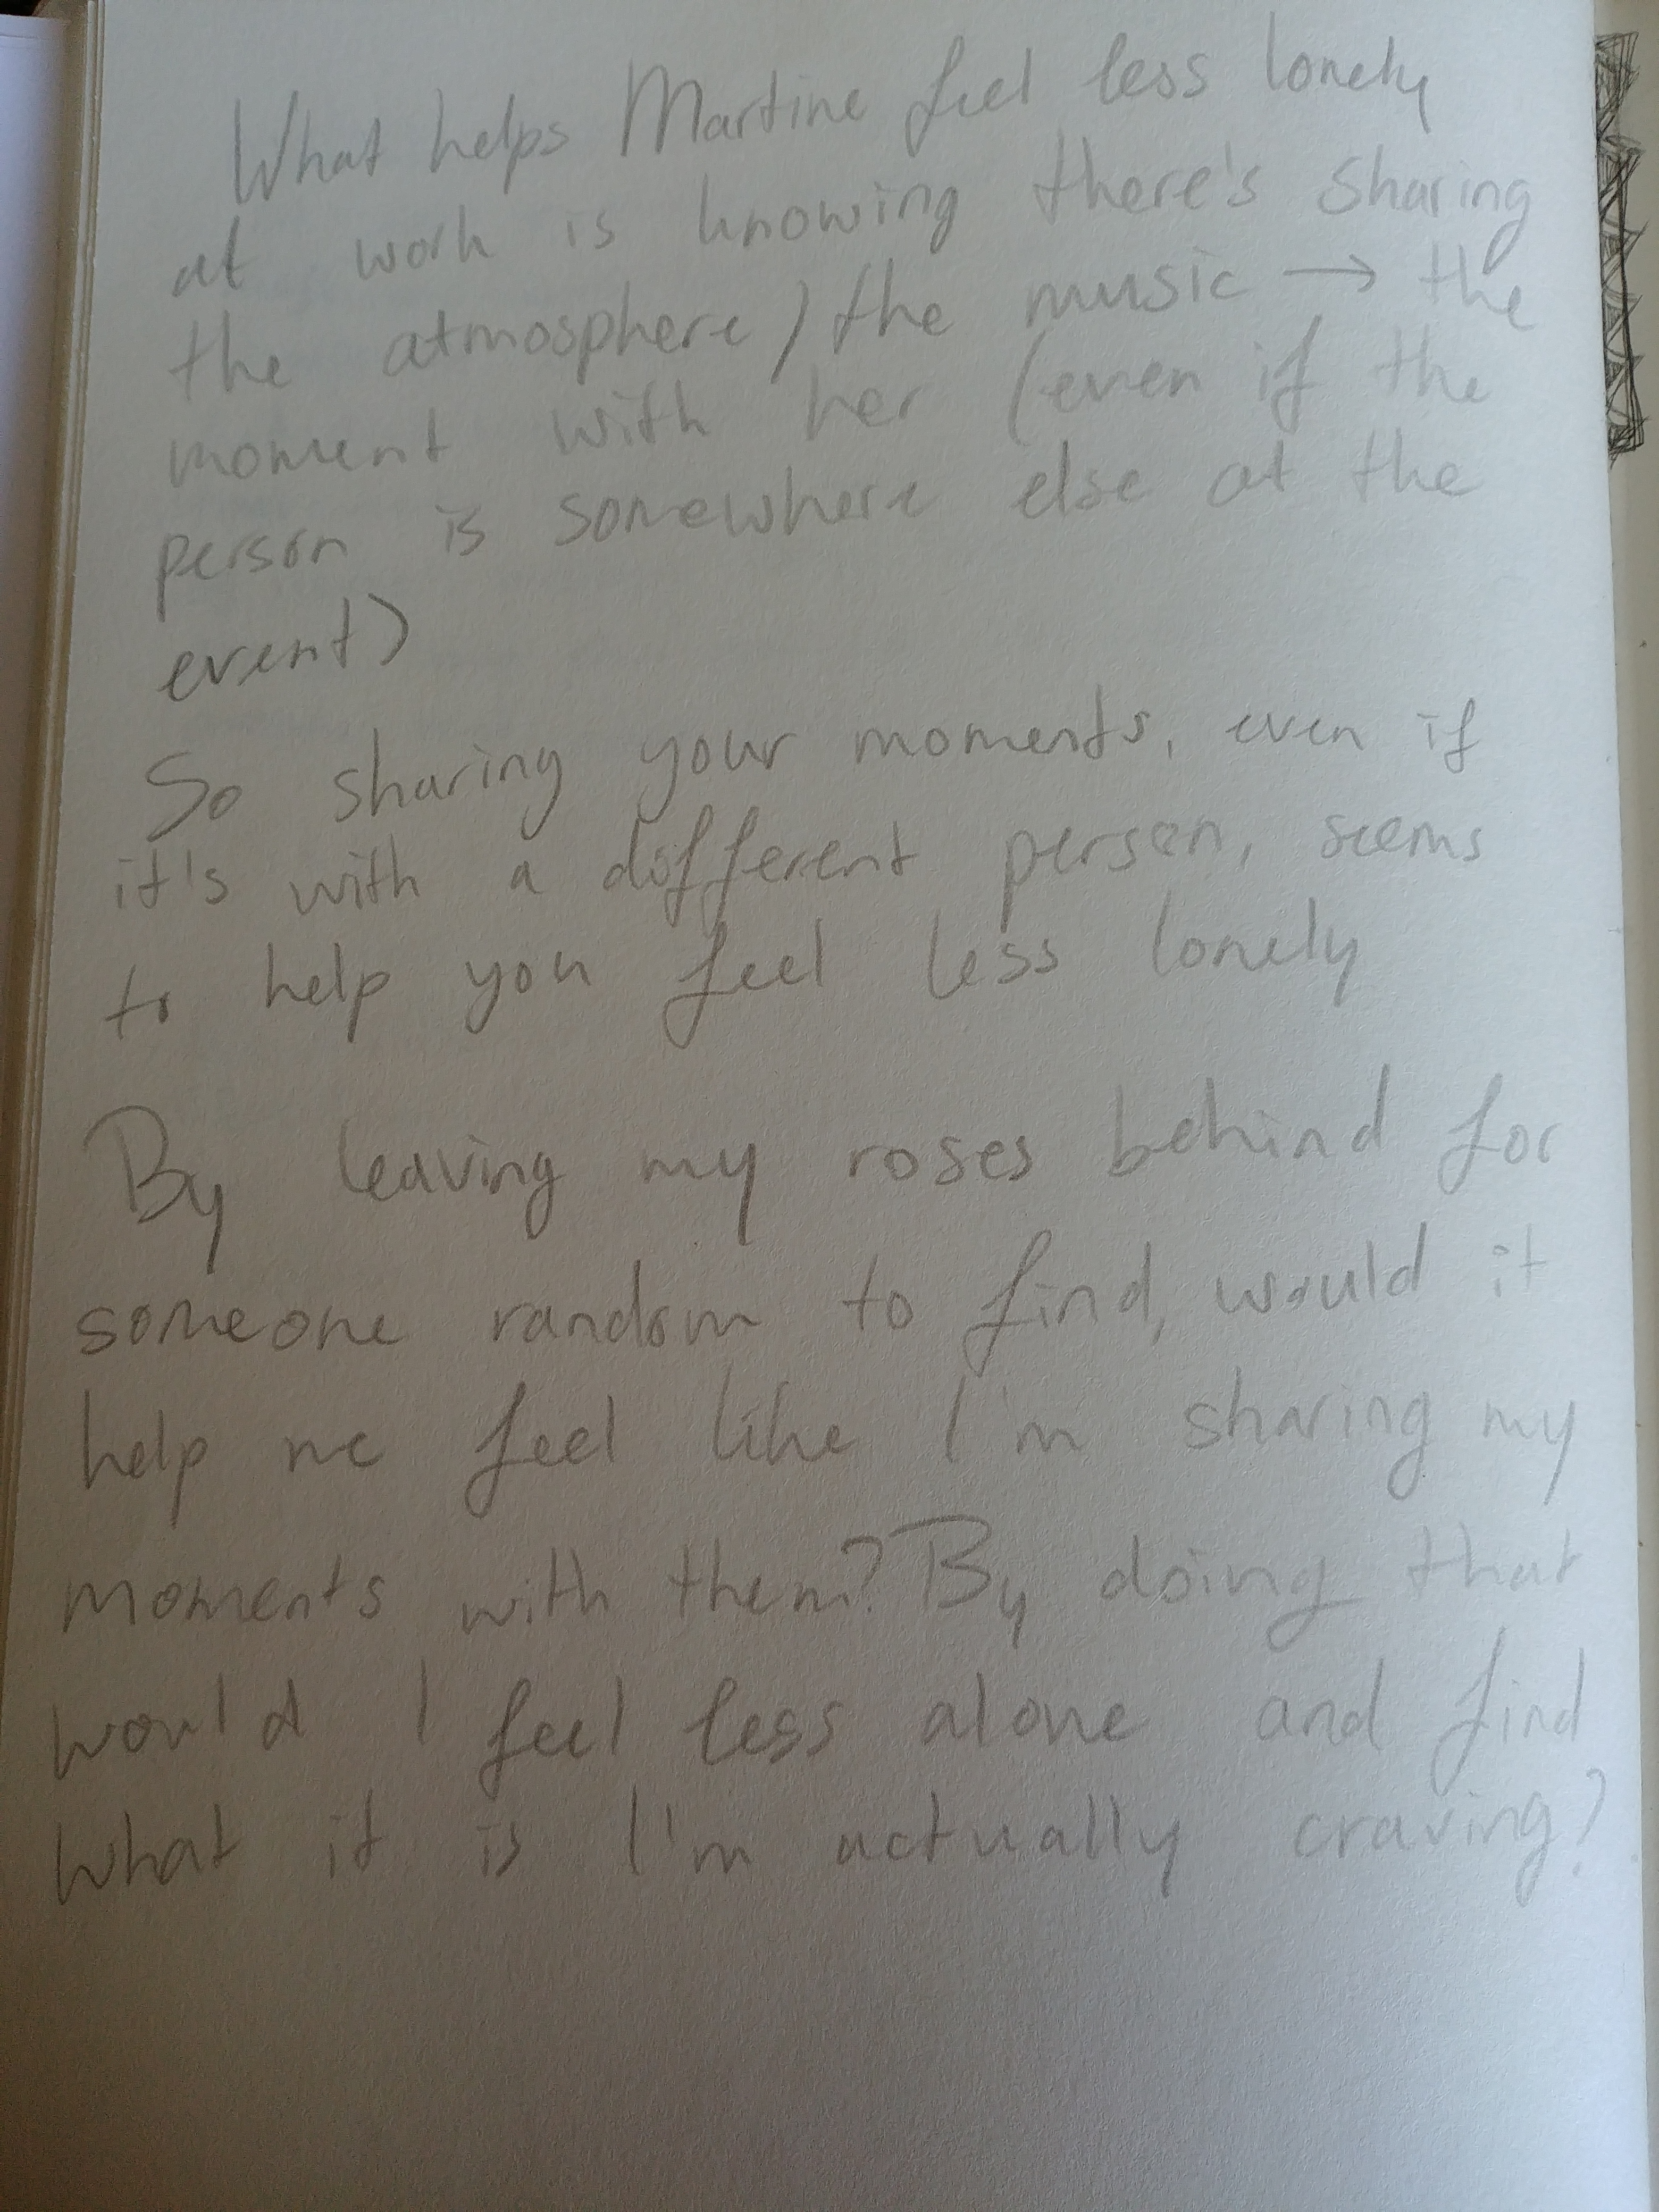 What helps Martine feel less lonely
at work is knowing there's sharing
the atmosphere / the music → the
moment with her (even if the
person is somewhere else at the
event)
So sharing your moments, even if
it's with a different person, seems
to help you feel less lonely
By leaving my roses behind for
someone random to find, would it
help me feel like I'm sharing my
moments with them? By doing that
would I feel less alone and find
what it is I'm actually craving?